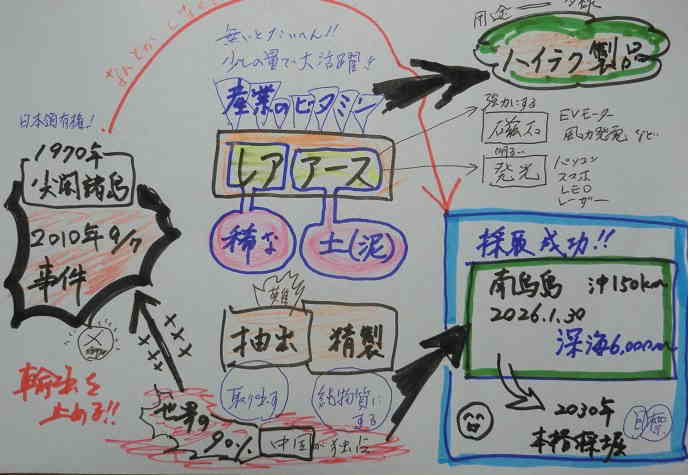 用途
無いとたいへん!!
少しの量で大活躍!!
産業のビタミン
ハイテク製品
日本領有権!
1970年
尖閣諸島
2010年9/7
事件
レア アース
稀な
土(泥)
強力にする
磁石
EVモーター
風力発電 など
明るい
発光
パソコン
スマホ
LED
レーザー
採取成功!!
南鳥島 沖150km
2026.1.30
深海6,000m
2030年
本格採掘
難
抽出
精製
取り出す
純物質にする
輸出を
止める!!
世界の
90%
中国が独占